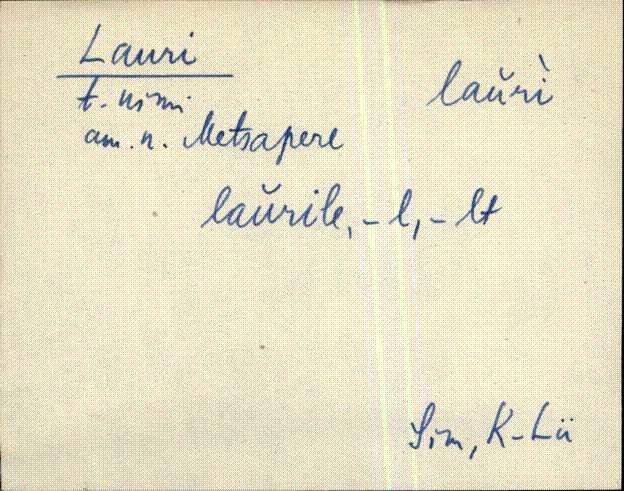 Lauri
laŭri̇̀
t. nimi
am. n. Metsapere
laŭrile, -l, -lt
Sim, K-Lü